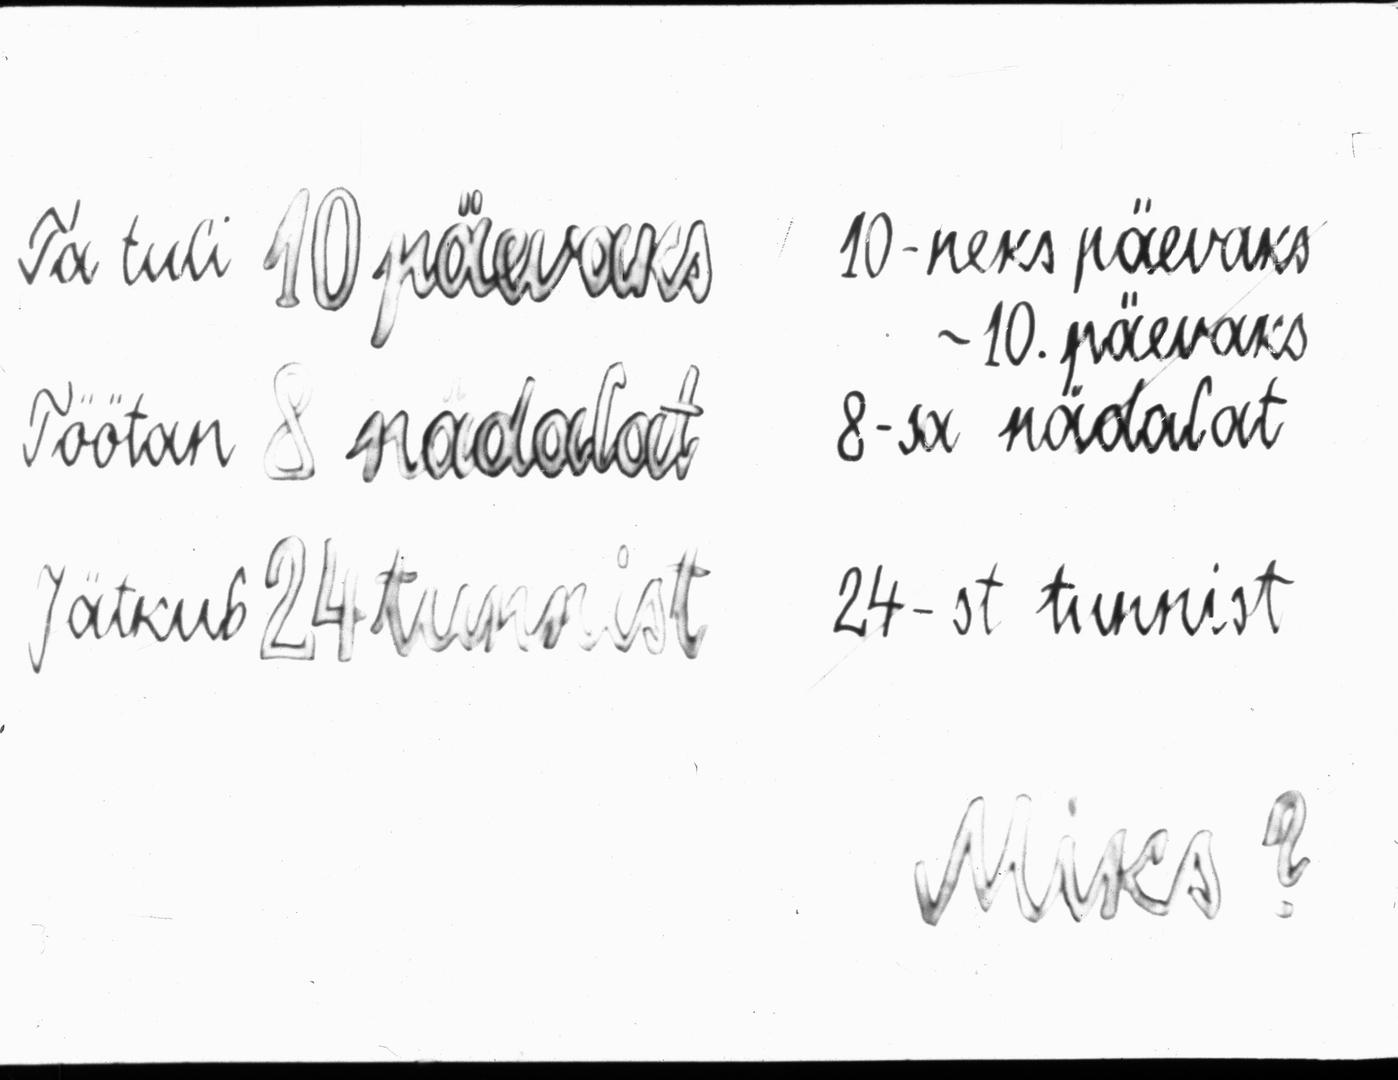 Ta tuli 10 päevaks 10-neks päevaks
~10. päevaks
Töötan 8 nädalat 8-sa nädalat
Jätkub 24 tunnist 24-st tunnist
Miks?